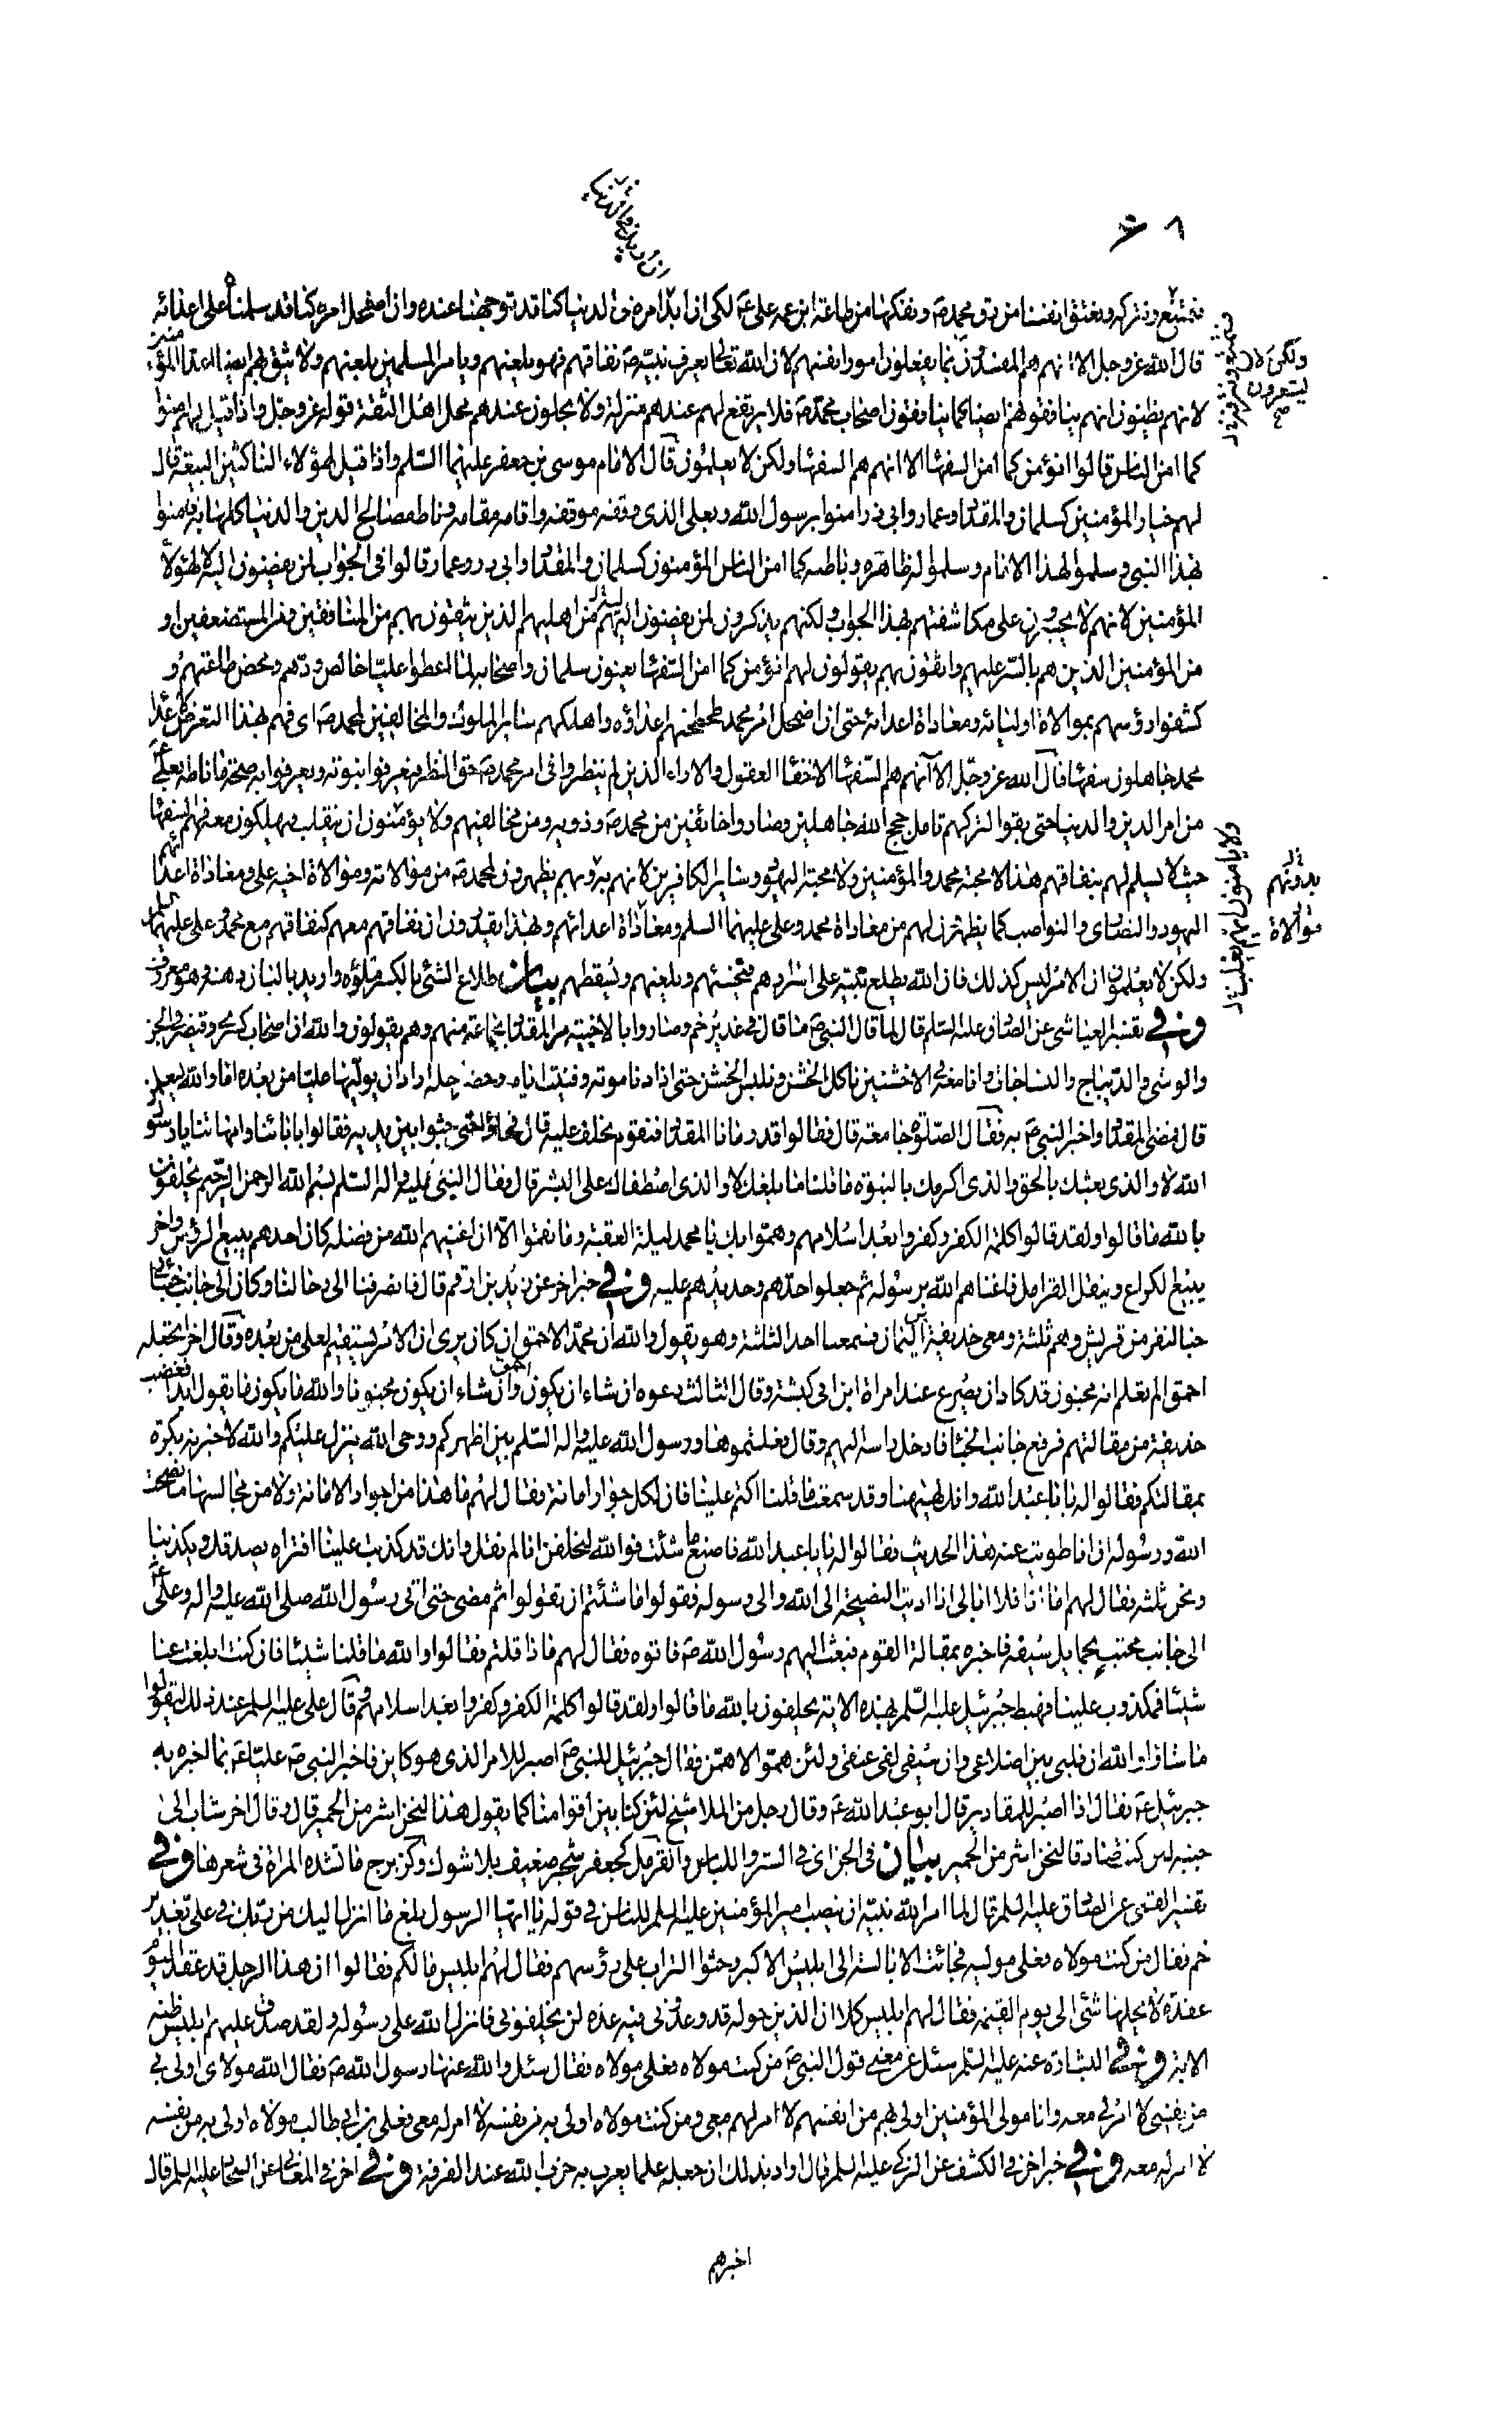 فنتمتع ونتركه ونعتق انفسنا من رق محمد ص ونفكها من طاعة ابن عمه علي ع لكي ان ادبر امره في الدنيا كنا قد توجهنا عنده وان اضمحل امره كنا قد سلمنا على اعدائه
قال الله عز وجل الا انهم هم المفسدون بما يفعلون امور انفسهم لان الله تعالى يعرف نبيه ص نفاقهم فهو يلعنهم ويامر المسلمين بلعنهم ولا يثق بهم ايضا اعداء المؤمنين
لانهم يظنون انهم ينافقونهم ايضا كما ينافقون اصحاب محمد ص فلا يرتفع لهم عندهم منزلة ولا يحلون عندهم محل اهل الثقة قوله عز وجل واذا قيل لهم امنوا
كما امن الناس قالوا انؤمن كما امن السفهاء الا انهم هم السفهاء ولكن لا يعلمون قال الامام موسى بن جعفر عليهما السلم واذا قيل لهؤلاء الناكثين البيعة قال
لهم خيار المؤمنين كسلمان والمقداد وعمار وابي ذر امنوا برسول الله وبعلي الذي وقفه موقفه واقامه مقامه وناط مصالح الدين والدنيا كلها به فامنوا
بهذا النبي وسلموا لهذا الامام وسلموا له ظاهره وباطنه كما امن الناس المؤمنون كسلمان والمقداد وابي ذر وعمار قالوا في الجواب لمن يفضون اليه لا لهؤلاء
المؤمنين لانهم لا يجسرون على مكاشفتهم بهذا الجواب ولكنهم يذكرون لمن يفضون اليهم من اهليهم الذين يثقون بهم من المنافقين ومن المستضعفين او
من المؤمنين الذين هم بالستر عليهم واثقون بهم يقولون لهم انؤمن كما امن السفهاء يعنون سلمان واصحابه لما اعطوا عليا خالص ودهم ومحض طاعتهم و
كشفوا رؤسهم بموالاة اوليائه ومعاداة اعدائه حتى اذا اضمحل امر محمد طحطحهم اعداؤه واهلكهم سائر الملوك والمخالفين لمحمد ص اي فهم بهذا التعرض لاعداء
محمد جاهلون سفهاء قال الله عز وجل الا انهم هم السفهاء الاخفاء العقول والاراء الذين لم ينظروا في امر محمد ص حق النظر فيعرفوا نبوته ويعرفوا به صحة ما ناطه بعلي ع
من امر الدين والدنيا حتى بقوا لتركهم تامل حجج الله جاهلين وصاروا خائفين من محمد ص وذويه ومن مخالفيهم ولا يؤمنون ان ينقلب فيهلكون معه فهم السفهاء
حيث لا يسلم لهم بنفاقهم هذا لا محبة محمد والمؤمنين ولا محبة اليهود وسائر الكافرين لانهم به وبهم يظهرون لمحمد ص من موالاته وموالاة اخيه علي ومعاداة اعدائهم
اليهود والنصارى والنواصب كما يظهرون لهم من معاداة محمد وعلي عليهما السلم ومعاداة اعدائهم وبهذا يقدرون ان نفاقهم معهم كنفاقهم مع محمد وعلي عليهما السلم
ولكن لا يعلمون ان الامر ليس كذلك فان الله يطلع نبيه على اسرارهم فيخسئهم ويلعنهم ويسقطهم بيان طلاع الشيء بالكسر ملؤه واريد بالنار دهنه وهو معروف
وفي تفسير العياشي عن الصادق عليه السلم قال لما قال النبي ص ما قال في غدير خم وصاروا بالاخبية مر المقداد بجماعة منهم وهم يقولون والله ان اصحاب كسرى وقيصر في الخز
والوشي والديباج والنساجات وانا معه في الاخشنين ناكل الخشن ونلبس الخشن حتى اذا دنا موته وفنيت ايامه وحضر اجله اراد ان يوليها عليا من بعده اما والله ليعلمن
قال فمضى المقداد واخبر النبي ص به فقال الصلوة جامعة قال فقالوا قد رمانا المقداد فنقوم نحلف عليه قال فجاؤا حتى جثوا بين يديه فقالوا بابائنا وامهاتنا يا رسول
الله لا والذي بعثك بالحق والذي اكرمك بالنبوة ما قلنا ما بلغك لا والذي اصطفاك على البشر قال فقال النبي عليه واله السلم بسم الله الرحمن الرحيم يحلفون
بالله ما قالوا ولقد قالوا كلمة الكفر وكفروا بعد اسلامهم وهموا بك يا محمد ليلة العقبة وما نقموا الا ان اغنيهم الله من فضله كان احدهم يبيع الرؤس واخر
يبيع الكراع وينقل القرامل فاغناهم الله برسوله ثم جعلوا حدهم وحديدهم عليه وفي خبر اخر عن زيد بن ارقم قال فانصرفنا الى رحالنا وكان الى جانب خبائي
خباء لنفر من قريش وهم ثلثة ومعي حذيفة اليمان فسمعنا احد الثلثة وهو يقول والله ان محمدا لاحمق ان كان يرى ان الامر يستقيم لعلي من بعده وقال اخر اتجعله
احمق الم تعلم انه مجنون قد كاد ان يصرع عند امراة ابن ابي كبشة وقال الثالث دعوه ان شاء ان يكون احمق وان شاء ان يكون مجنونا والله ما يكون ما يقول ابدا فغضب
حذيفة من مقالتهم فرفع جانب الخباء فادخل راسه اليهم وقال فعلتموها ورسول الله عليه واله السلم بين اظهركم ووحي الله ينزل عليكم والله لاخبرنه بكرة
بمقالتكم فقالوا له يا ابا عبد الله وانك لههنا وقد سمعت ما قلنا اكتم علينا فان لكل جوار امانة فقال لهم ما هذا من جوار الامانة ولا من مجالسها ما نصحت
الله ورسوله ان انا طويت عنه هذا الحديث فقالوا له يا ابا عبد الله فاصنع ما شئت فوالله لنحلفن انا لم نقل وانك قد كذبت علينا افتراه يصدقك ويكذبنا
ونحن ثلثة فقال لهم اما انا فلا ابالي اذا اديت النصيحة الى الله والى رسوله فقولوا ما شئتم ان تقولوا ثم مضى حتى اتى رسول الله صلى الله عليه واله وعلي ع
الى جانب محتبٍ بحمايل سيفه فاخبره بمقالة القوم فبعث اليهم رسول الله ص فاتوه فقال لهم ماذا قلتم فقالوا والله ما قلنا شيئا فان كنت ابلغت عنا
شيئا فمكذوب علينا فهبط جبرئيل عليه السلم بهذه الاية يحلفون بالله ما قالوا ولقد قالوا كلمة الكفر وكفروا بعد اسلامهم وقال علي عليه السلم عند ذلك ليقولوا
ما شاؤا والله ان قلبي بين اضلاعي وان سيفي لفي عنقي ولئن هموا لاهمن فقال جبرئيل للنبي ص اصبر للامر الذي هو كاين فاخبر النبي ص عليا ع بما اخبره به
جبرئيل ع فقال اذا اصبر للمقادير قال ابو عبد الله ع وقال رجل من الملا شيخ لئن كنا بين اقوامنا كما يقول هذا لنحن اشر من الحمير قال وقال اخر شاب الى
جنبه لئن كنت صادقا لنحن اشر من الحمير بيان في الخز اي في الستر واللباس والقرمل كجعفر شجر ضعيف بلا شوك وكزبرج ما تشده المراة في شعرها وفي
تفسير القمي عن الصادق عليه السلم قال لما امر الله نبيه ان ينصب امير المؤمنين عليه السلم للناس في قوله يا ايها الرسول بلغ ما انزل اليك من ربك في علي بغدير
خم فقال من كنت مولاه فعلي موليه فجائت الابالسة الى ابليس الاكبر وحثوا التراب على رؤسهم فقال لهم ابليس ما لكم فقالوا ان هذا الرجل قد عقد اليوم
عقدة لا يحلها شيء الى يوم القيمة فقال لهم ابليس كلا ان الذين حوله قد وعدوني فيه عدة لن يخلفوني فانزل الله على رسوله ولقد صدق عليهم ابليس ظنه
الاية وفي البشارة عنه عليه السلم سئل عن معنى قول النبي ص من كنت مولاه فعلي مولاه فقال سئل والله عنها رسول الله ص فقال الله مولاي اولى بي
من نفسي لا امر لي معه وانا مولى المؤمنين اولى بهم من انفسهم لا امر لهم معي ومن كنت مولاه اولى به من نفسه لا امر له معي فعلي بن ابي طالب مولاه اولى به من نفسه
لا امر له معه وفي خبر اخر في الكشف عن الزكي عليه السلم قال اراد بذلك ان جعله علما يعرف به حزب الله عند الفرقة وفي اخر في المعاني عن السجاد عليه السلم قال
ولكن لا
يشعرون
صح
موالاة
اخبرهم